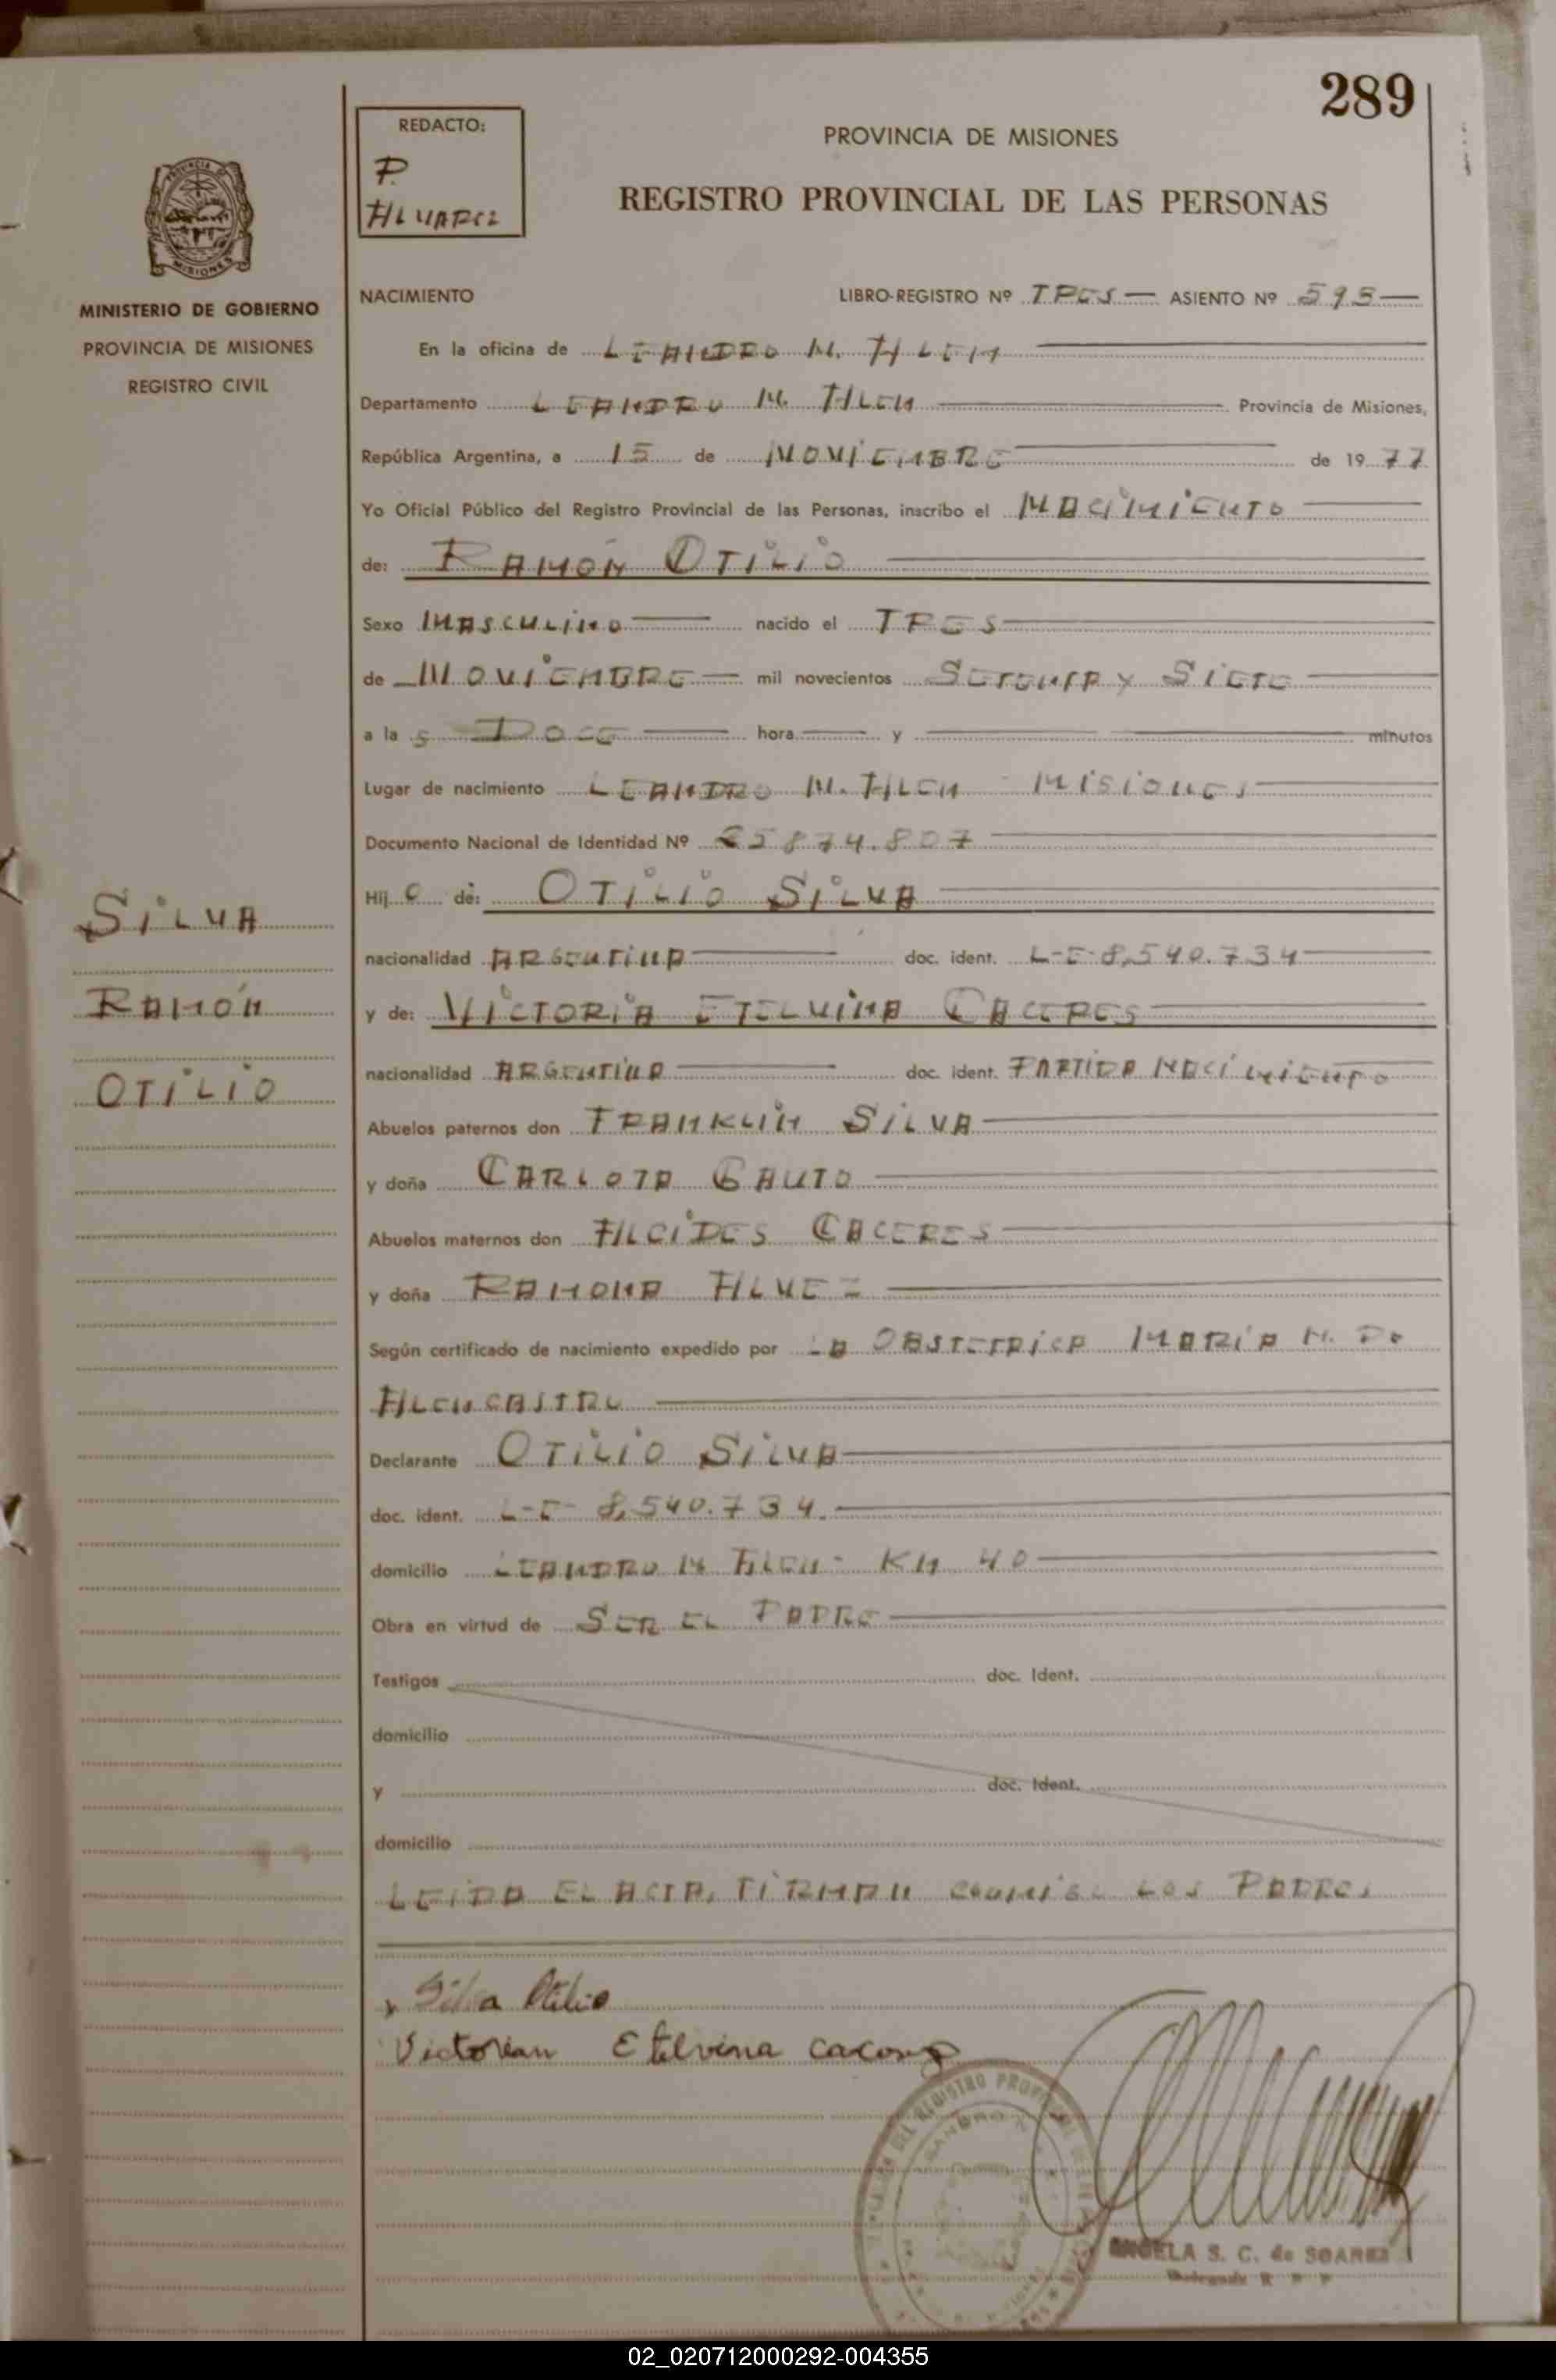 289
REDACTO:
P.
ALVAREZ
PROVINCIA DE MISIONES
REGISTRO PROVINCIAL DE LAS PERSONAS
MINISTERIO DE GOBIERNO
PROVINCIA DE MISIONES
REGISTRO CIVIL
NACIMIENTO LIBRO-REGISTRO Nº TRES ASIENTO Nº 595
En la oficina de LEANDRO N. ALEM
Departamento LEANDRO N. ALEM Provincia de Misiones,
República Argentina, a 15 de NOVIEMBRE de 1977
Yo Oficial Público del Registro Provincial de las Personas, inscribo el NACIMIENTO
de: RAMÓN OTILIO
Sexo MASCULINO nacido el TRES
de NOVIEMBRE mil novecientos SETENTA Y SIETE
a las DOCE hora y minutos
Lugar de nacimiento LEANDRO N. ALEM - MISIONES
Documento Nacional de Identidad Nº 25874.807
Hijo de: OTILIO SILVA
nacionalidad ARGENTINA doc. ident. L-E-8.540.734
y de: VICTORIA ETELVINA CACERES
nacionalidad ARGENTINA doc. ident. PARTIDA NACIMIENTO
Abuelos paternos don FRANKLIN SILVA
y doña CARLOTA GAUTO
Abuelos maternos don ALCIDES CACERES
y doña RAMONA ALVEZ
Según certificado de nacimiento expedido por LA OBSTETRICA MARIA N. DE
ALENCASTRO
Declarante OTILIO SILVA
doc. ident. L-E- 8.540.734.
domicilio LEANDRO N ALEM - KM 40
Obra en virtud de SER EL PADRE
Testigos doc. Ident.
domicilio
y doc. Ident.
domicilio
LEIDA EL ACTA, FIRMAN CONMIGO LOS PADRES
SILVA
RAMÓN
OTILIO
Silva Otilio
Victorian Etelvina
ANGELA S. C. de SOAREZ
02_020712000292-004355